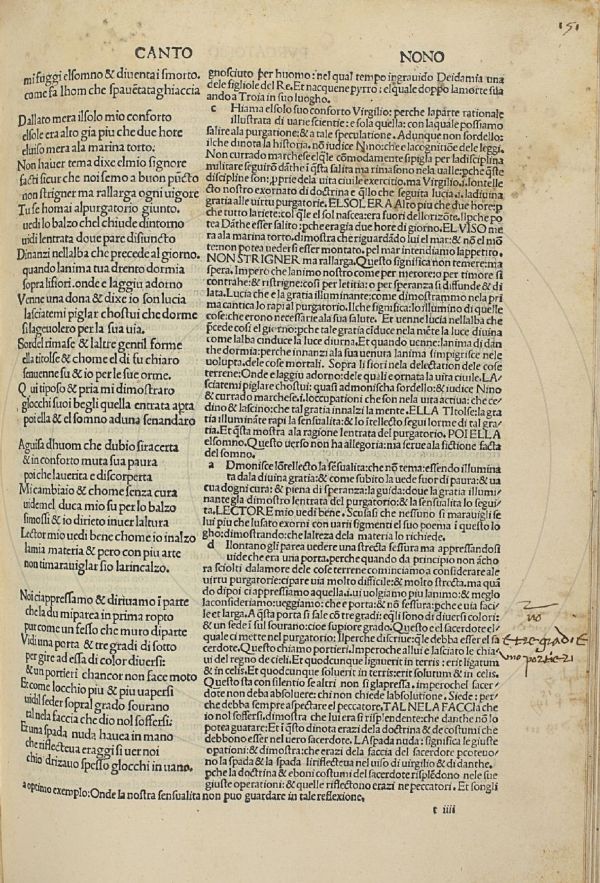 151
CANTO
NONO
mi fuggi elsomno & diuentai smorto.
come fa lhom che spauētata ghiaccia
Dallato mera ilsolo mio conforto
elsole era alto gia piu che due hore
eluiso mera ala marina torto.
Non hauer tema dixe elmio signore
facti sicur che noi semo a buon pūcto
non strigner ma rallarga ogni uigore
Tu se homai alpurgatorio giunto.
uedi lo balzo chel chiude dintorno
uidi lentrata doue pare disiuncto
Dinanzi nellalba che precede al giorno.
quando lanima tua drento dormia
sopra lifiori. onde e laggiu adorno
Venne una dona & dixe io son lucia
lasciatemi piglar chostui che dorme
si lageuolero per la sua uia.
Sordel rimase & laltre gentil forme
ella titolse & chome el di fu chiaro
senuenne su & io per le sue orme.
Qui tiposo & pria mi dimostraro
glocchi suoi begli quella entrata apta
poi ella & el somno aduna senandaro
Aguisa dhuom che dubio siracerta
& in conforto muta sua paura
poi che lauerita e discoperta
Mi cambiaio & chome senza cura
uidemel duca mio su per lo balzo
simossi & io dirieto inuer laltura
Lector mio uedi bene chome io inalzo
lamia materia & pero con piu arte
non timarauiglar sio larincalzo.
Noi ciappressamo & dirivamo ī parte
che la du mi parea in prima ropto
pur come un fesso che muro diparte
Vidi una porta & tre gradi di sotto
per gire ad essa di color diuersi:
& un portieri chancor non face moto
Et come locchio piu & piu uapersi
uidil seder sopral grado sourano
tal nela faccia che dio nol soffersi:
Et una spada nuda hauea in mano
che riflectea eraggi si uer noi
chio drizauo spesso glocchi in uano.
gnosciuto per huomo: nel qual tempo ingrauido Deidamia una
dele figliole del Re. Et nacque pyrro: elquale doppo la morte sua
ando a Troia in suo luogho.
c Hiama elsolo suo conforto Virgilio: perche laparte rationale
illustrata di uarie scientie: e sola quella: con laquale possiamo
salire ala purgatione: & a tale speculatione. Adunque non sordello:
militare seguirō dāthe ī q̄sta salita ma rimasono nela ualle: pche q̄ste
gratia alle uirtu purgatorie. EL SOL ERA Alto piu che due hore: p
NON STRIGNER ma rallarga. Questo significa non temere: ma
spera. Impero che lanimo nostro come per merore: o per timore si
contrahe: & ristrigne: cosi per letitia: o per speranza si diffunde & di
cose: che erono necessarie ala sua salute. Et uenne lucia nellalba che
come lalba cinduce la luce diurna. Et quando uenne: lanima di dan
the dormia: perche innanzi ala sua uenuta lanima simpigrisce nele
uolupta, dele cose mortali. Sopra li fiori nela delectation dele cose
terrene: Onde e laggiu adorno: dele quali e ornata la uita ciuile. LA
sciatemi piglare chostui: quasi admonisce sordello: & iudice Nino
dino & lascino: che tal gratia innalzi la mente. ELLA TItolse: la gra
tia illumināte rapi la sensualita: & lo ītellecto segui lorme di tal gra
tia. Et q̄sta mostra ala ragione lentrata del purgatorio. POI ELLA
elsomno. Questo uerso non ha allegoria: ma serue ala fictione facta
del somno.
a Dmonisce lo ītellecto la sēsualita: che nō tema: essendo illumina
ta dala diuina gratia: & come subito la uede fuor di paura: & ua
cua dogni cura: & piena di speranza: la guida: doue la gratia illumi
nante gla dimostro lentrata del purgatorio: & la sensualita lo segui
ta. LECTORE mio uedi bene. Scusasi che nessuno si marauigli se
lui piu che lusato exorni con uarii sigmenti el suo poema i questo lo
gho: dimostrando: che lalteza dela materia lo richiede.
d Ilontano gli parea uedere una strecta fessura ma appressandosi
uide che era una porta. perche quando da principio non ācho
ra sciolti dalamore dele cose terrene cominciamo a considerare ale
do dipoi ci appressiamo aquella. i. ui uolgiamo piu lanimo: & meglo
la consideriamo: ueggiamo: che e porta: & nō fessura: pche e uia faci
le et larga. A q̄sta porta si sale cō tre gradi: e q̄li sono di diuersi colori:
& un sede ī sul soprano: cioe supiore grado. Questo e el sacerdote el
cerdote. Questo chiamo portieri. Imperoche allui e lasciato le chia
ui del regno de cieli. Et quodcunque ligauerit in terris: erit ligatum
& in celis. Et quodcunque soluerit in terris: erit solutum & in celis.
Questo sta con silentio se altri non si glapressa. imperochel sacer
dote non deba absoluere: chi non chiede labsolutione. Siede: per
che debba sempre aspectare el peccatore. TAL NELA FACCIA che
io nol soffersi. dimostra che lui era si risplendente: che danthe nō lo
potea guatare: Et ī q̄sto dinota erazi dela doctrina & de costumi che
debbono esser nel uero sacerdote. LA spada nuda: significa le giuste
opationi: & dimostra: che erazi dela faccia del sacerdote percoteuo
no la spada & la spada li riflecteua nel uiso di uirgilio & di danthe.
pche la doctrina & eboni costumi del sacerdote risplēdono nele sue
giuste operationi: & quelle riflectono erazi ne peccatori. Et songli
a optimo exemplo: Onde la nostra sensualita non puo guardare in tale reflexione.
r iiii
E tre gradi E
uno portieri